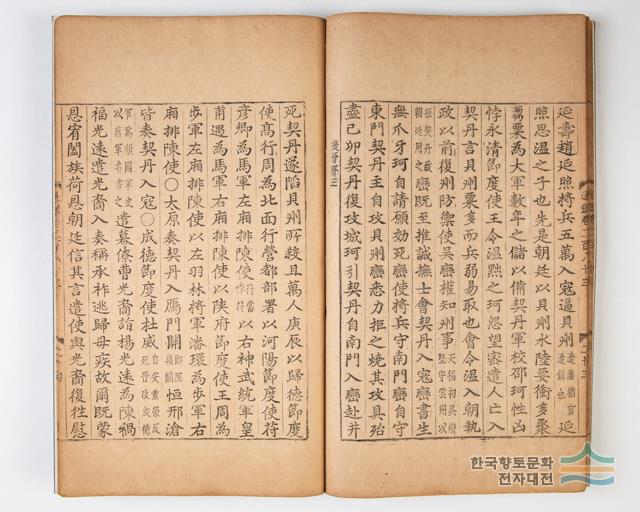 延壽趙延照將兵五萬入寇逼貝州 邊藩猶言邊鎭也 延
照思溫之子也先是朝廷以貝州水陸要衝多聚
芻粟爲大軍數年之儲以備契丹軍校邵珂性凶
悖永淸節度使王令溫黜之珂怨望密遣人亡入
契丹言貝州粟多而兵弱易取也會令溫入朝執
政以前復州防禦使吳巒權知州事 天福初吳巒堅守雲州以
拒契丹故朝廷用之 巒旣至推誠撫士會契丹入寇巒書生
無爪牙珂自請願效死巒使將兵守南門巒自守
東門契丹主自攻貝州巒悉力拒之燒其攻具殆
盡己卯契丹復攻城珂引契丹自南門入巒赴井
後晉齊王
死契丹遂陷貝州所殺且萬人庚辰以歸德節度
使高行周爲北面行營都部署以河陽節度使符
彦卿爲馬軍左廂排陳使 以右神武統軍皇
甫遇爲馬軍右廂排陳使以陝府節度使王周爲
步軍左廂排陳使以左羽林將軍潘環爲步軍右
廂排陳使○太原奏契丹入鴈門關 恒邢滄
皆奏契丹入寇○成德節度使杜威
遣幕僚曹光裔詣楊光遠爲陳禍
福光遠遣光裔入奏稱承祚逃歸母疾故爾旣蒙
恩宥闔族荷恩朝廷信其言遣使與光裔復往慰
한국향토문화
전자대전